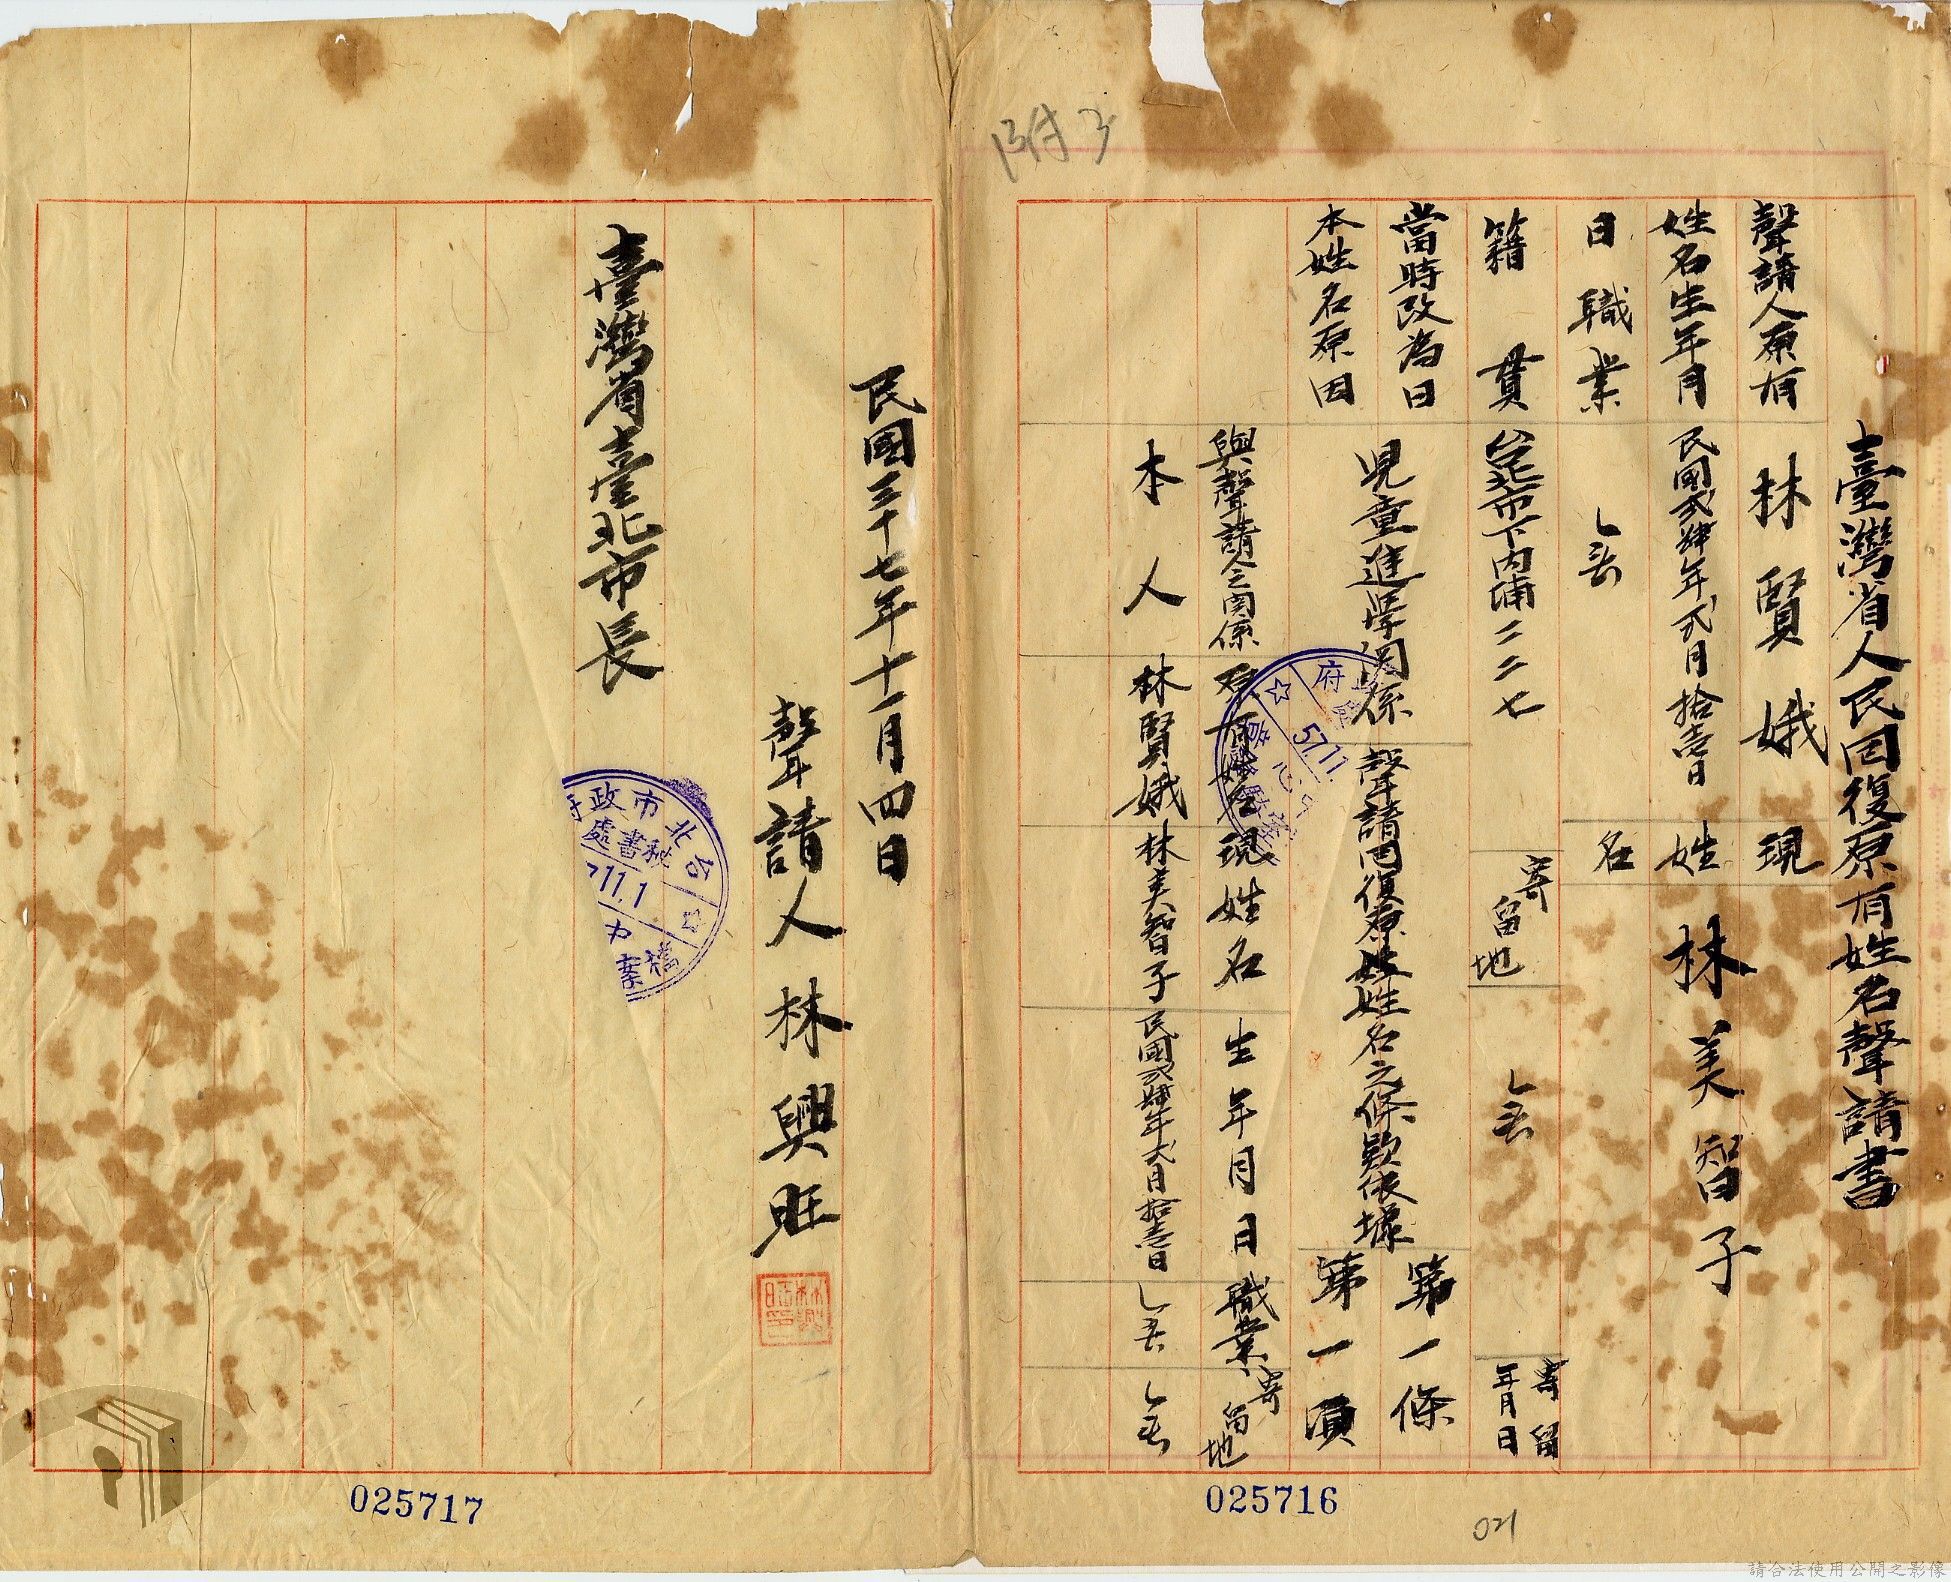 附3
臺灣省人民回復原有姓名聲請書
聲請人原有
姓名生年月
日職業
林賢娥
民國貳肆年貳月拾壹日
現
姓
名
林美智子
籍貫
台北市下内埔二二七
寄
留地
寄留
年月日
當時改為日
本姓名原因
児童進学関係
聲請回復原姓姓名之條欵依據
第一條
第一項
與聲請人之関係
原有姓名
現姓名
生年月日
職業
寄留地
本人
林賢娥
林美智子
民國貳肆年貳月拾壹日
府
57.11.
025716
021
民國三十七年十一月四日
聲請人林興旺
臺灣省臺北市長
台北市政府
秘書處
11.1
檔案
025717
請合法使用公開之影像